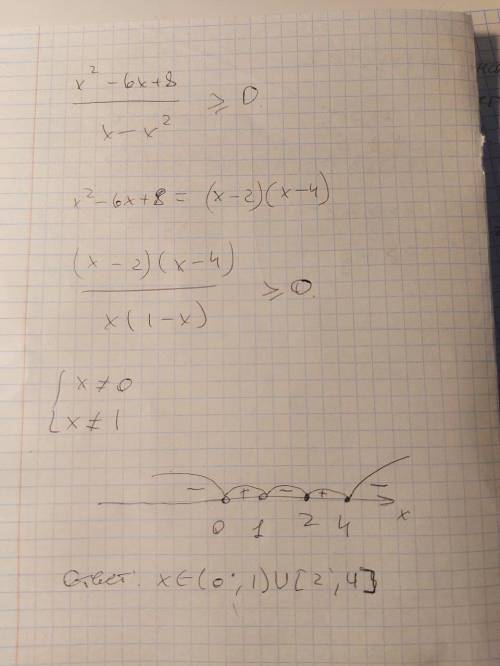 x² - 6x + 8 / x - x² ⩾ 0
x² - 6x + 8 = (x - 2)(x - 4)
(x - 2)(x - 4) / x(1 - x) ⩾ 0.
{ x ≠ 0
x ≠ 1
- + - + -
0 1 2 4 x
Ответ: x ∈ (0; 1) ∪ [2; 4]